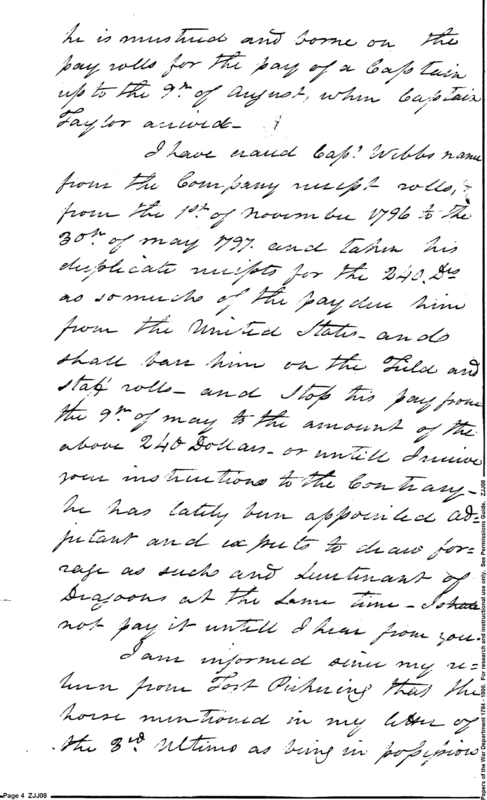 he is mustered and borne on the
pay rolls for the pay of a Captain
up to the 9th of August, when Captain
Taylor arrived-
I have erased Capt. Webbs name
from the Company receipt rolls, &
from the 1st of November 1796 to the
30th. of may 1797. and taken his
duplicate receipts for the 240. Drs
as so much of the pay due him
from the United States - and
shall bear him on the Field and
staff rolls - and stop his pay from
the 9th of may to the amount of the
above 240 Dollars - or untill I receive
your instructions to the Contrary -
he has lately been appointed Ad=
jutant and expects to draw for=
rage as such and Lieutenant of
Dragoons at the same time - I shall
not pay it untill I hear from you.
I am informed since my re=
turn from Fort Pickering that the
horse mentioned in my letter of
the 3rd. Ultimo as being in possession
Page 4 ZJJ08
Papers of the War Department 1784 - 1800. For research and instructional use only. See Permissions Guide. ZJJ08